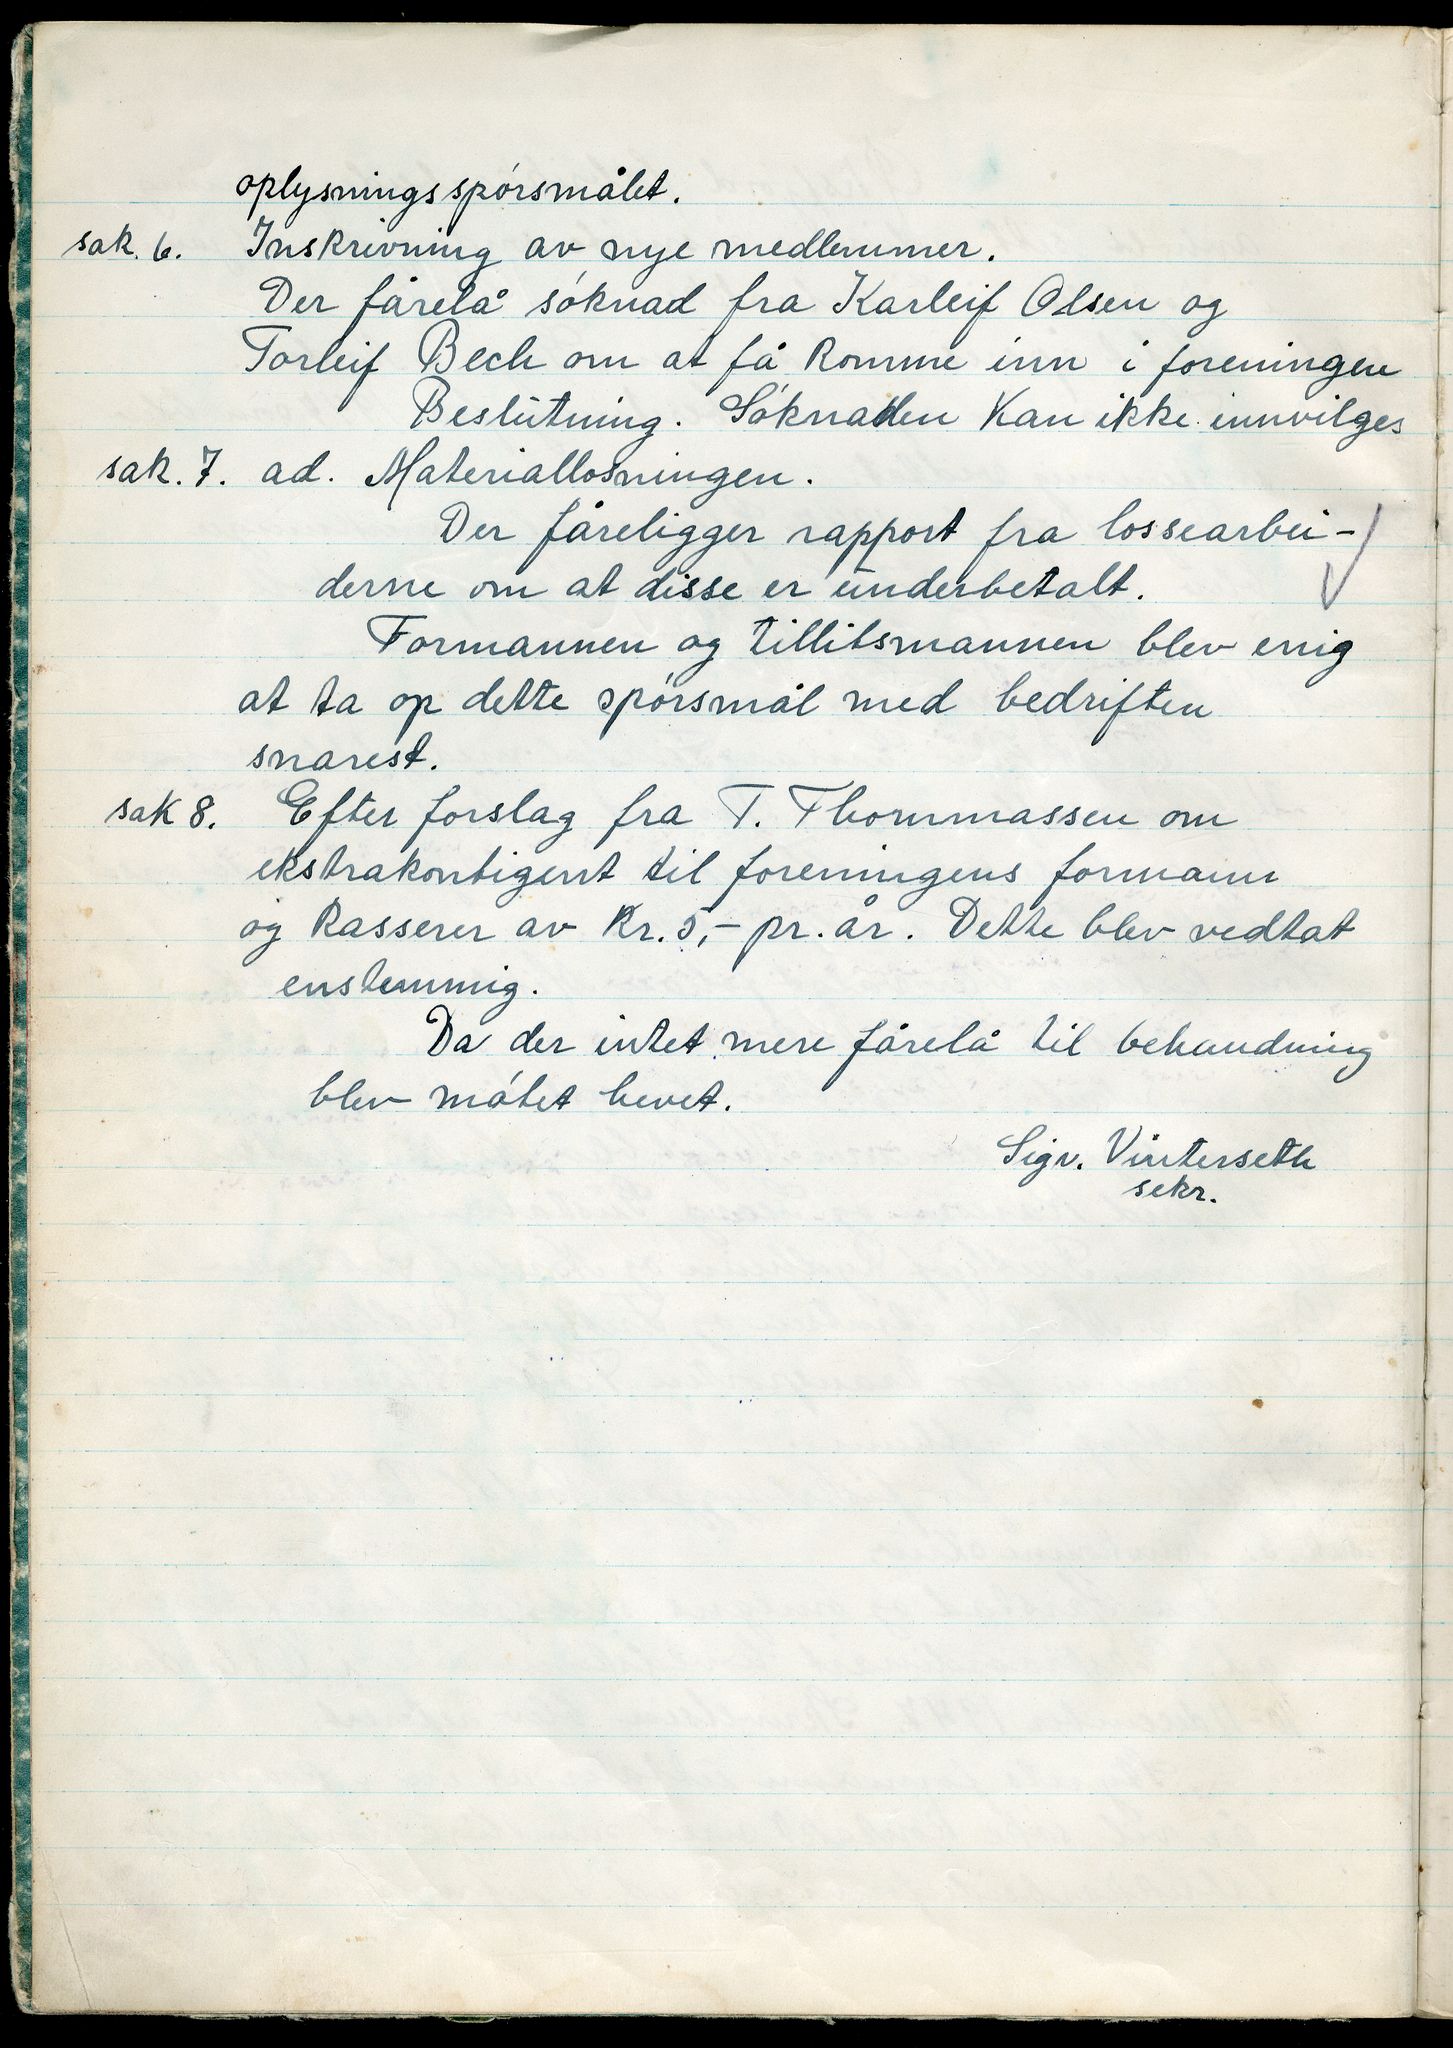 oplysningsspórsmålet.
sak. 6. Inskrivning av nye medlemmer.
Der fårelå søknad fra Karleif Olsen og
Torleif Bech om at få komme inn i foreningen
Beslutning. Søknaden kan ikke innvilges
sak. 7. ad. Materiallosningen.
Der fåreligger rapport fra lossearbei-
derne om at disse er underbetalt.
Formannen og tillitsmannen blev enig
at ta op dette spórsmål med bedriften
snarest.
sak 8. Efter forslag fra T. Thommassen om
ekstrakontigent til foreningens formann
og kasserer av kr. 5,- pr. år. Dette blev vedtat
enstemmig.
Da der intet mere fårelå til behandning
blev mótet hevet.
Sigv. Vinterseth
sekr.